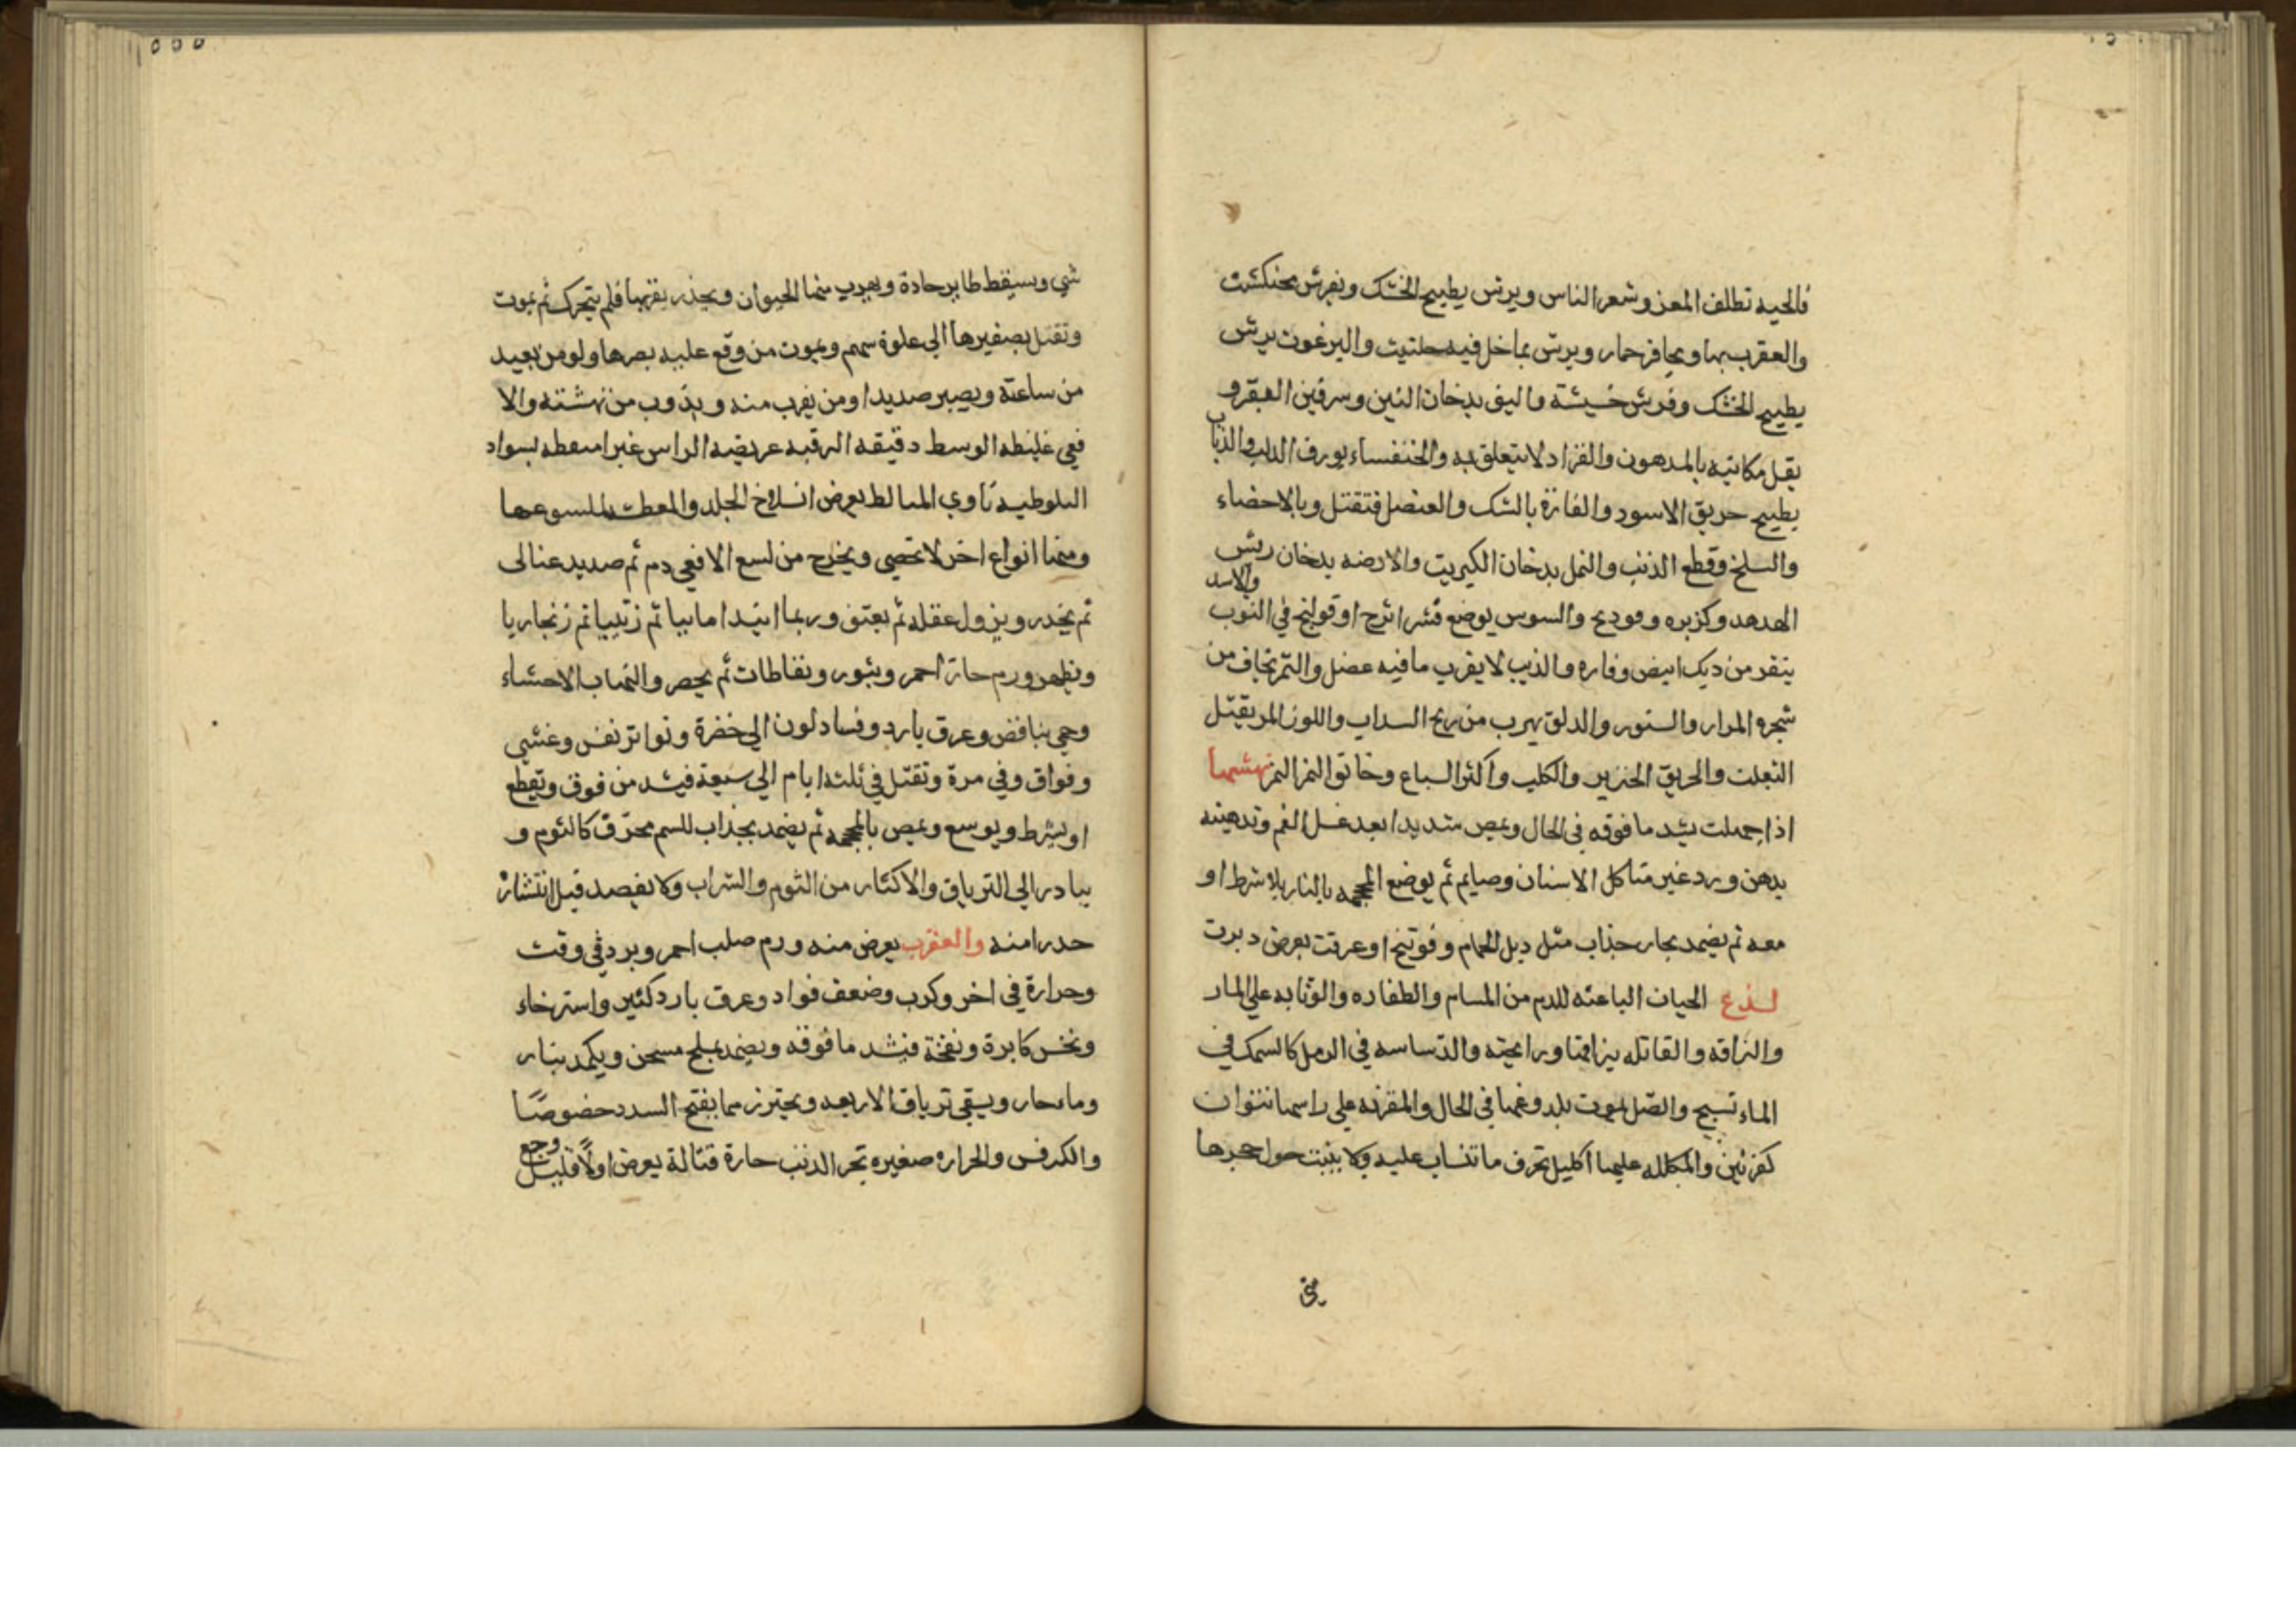 فالحيه تطلف المعز وشعر الناس ويرش بطبيخ الخشك ويفرش محنكشت
والعقرب بها وبحافر حمار ويرش بماخل فيه حلتيت والبرغوث يرش
بطبيخ الخشك وفرش خشيشة والبق بدخان التين وسرقين البقر و
يقل مكانيه بالمدهون والقراد لا يتعلق به والخنفساء بورق الدلب والذباب
بطبيخ حريق الاسود والفارة بالشك والعنصل فتقتل وبالاخصاء
والسلخ وقطع الذنب والنمل بدخان الكبريت والارضه بدخان ريش
الهدهد وكزبره وفوديح والسوس يوضع قشر اترج او قولنج في الثوب والاسد
ينفر من ديك ابيض وفاره والذيب لا يقرب ما فيه عضل والنمر يخاف من
شجره المرار والسنور والدلق يهرب من ريح السداب واللوز المر يقتل
الثعلب والحريق الخنزير والكلب واكثر السباع وخانق النمر النمر نهشها
اذا جملت يشد ما فوقه في الحال ويمص شديدا بعد غسل الفم وتدهينه
بدهن ورد غير متاكل الاسنان وصايم ثم يوضع المحجمه بالنار بلا شرط او
معه ثم يضمد بحار جذاب مثل ذبل الحمام وفوتنج او عرقت بعرض دبرت
لذع الحيات الباعثه للدم من المسام والطفاره والوثابه علي المار
والبزاقه والقاتله ببزاقها ورائحته والدساسه في الرمل كالسمك في
الماء تسبح والصل يموت بلدوغها في الحال والمقرنه علي راسها نتوان
كقرنين والمكلله عليها اكليل تحرق ما تنساب عليه ولا ينبت حوا حجرها
شي
شي ويسقط طاير حادة ويهرب منها الحيوان ويحذر بقربها فلم يتحرك ثم يموت
وتقتل بصفيرها الي علوة سهم ويموت من وقع عليه بصرها ولو من بعيد
من ساعته ويصير صديدا ومن يقرب منه ويذوب من نهشته والا
فعي غليظه الوسط دقيقه الرقبه عريضه الراس غبرا منقطه بسواد
البلوطيه تاوي البلالط يعرض انسلاخ الجلد والمعطشه للسوعها
ومنها انواع اخر لا تحصي ويخرج من لسع الافعي دم ثم صديد عنالى
ثم يخدر ويزول عقله ثم يعتق وربما ابتدا مابيا ثم زيتيا ثم زنجاريا
ويظهر ورم حار احمر وبثور ونفاطات ثم يحصر والتهاب الاحشاء
وحمي بنافض وعرق بارد وفساد لون الي خضرة وتواتر نفس وغشي
وفواق وقي مرة وتقتل في ثلثة ايام الي سبعة فيشد من فوق ويقطع
او يشرط ويوسع ويمص بالمحجمه ثم يضمد بجذاب للسم محرق كالثوم و
يبادر الي الترياق والاكثار من الثوم والشراب ولا يفصد قبل انتشاره
حدرامنه والعقرب يعرض منه ورم صلب احمر وبرد في وقت
وحرارة في اخر وكرب وضعف فواد وعرق بارد كثير واسترخاء
ونخس كابرة ونفخة فيشد ما فوقه ويضمد بملح مسخن ويكمد بنار
وماء حار ويسقي ترياق الاربعه ويحترز مما يفتح السدد خصوصًا
والكرفس والجراره صغيره تجر الذنب حارة قتالة يعرض اولًا قليل وجع